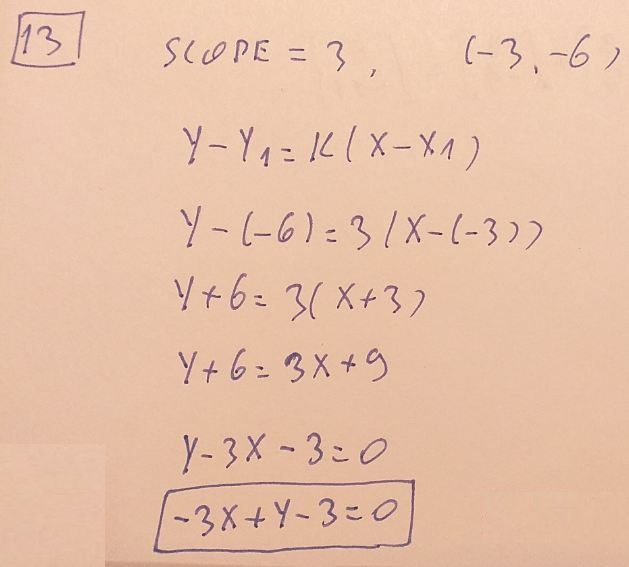 13 SLOPE = 3, (-3, -6)
Y-Y1=K(X-X1)
Y-(-6)=3(X-(-3))
Y+6=3(X+3)
Y+6=3X+9
Y-3X-3=0
-3X+Y-3=0